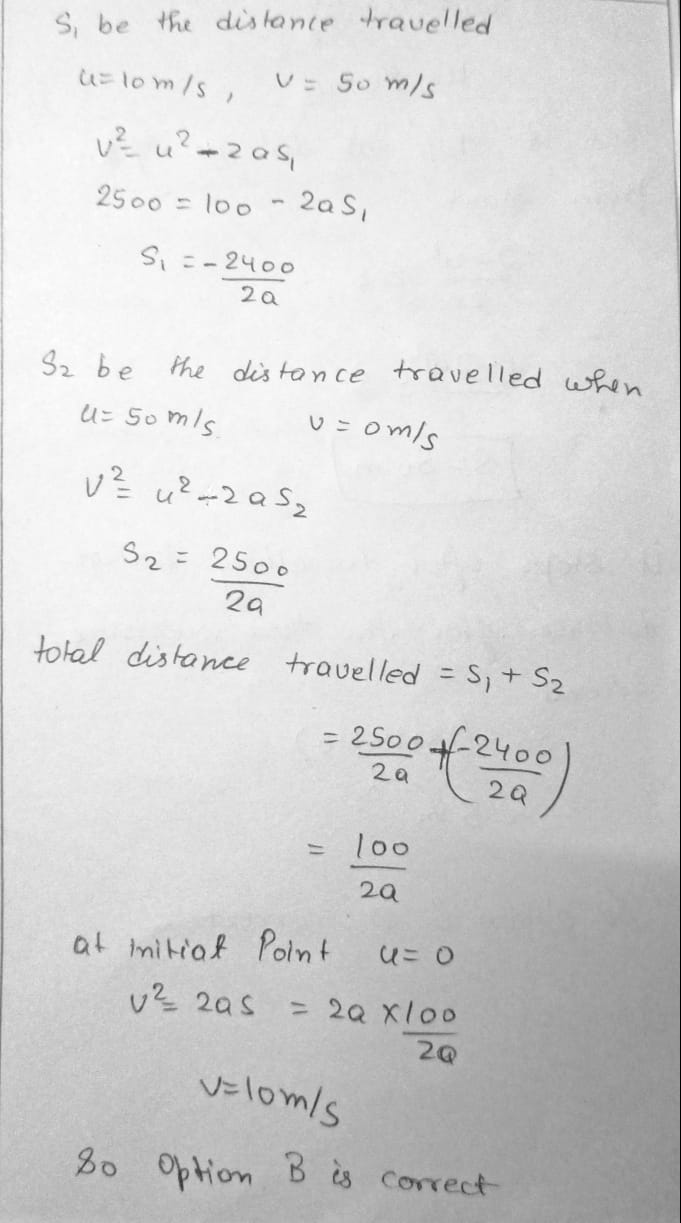 S₁ be the distance travelled
u=10m/s, v = 50 m/s
v² = u² - 2as₁
2500 = 100 - 2aS₁
S₁ = - 2400/2a
S₂ be the distance travelled when
u= 50 m/s v = 0m/s
v² = u² - 2aS₂
S₂ = 2500/2a
total distance travelled = S₁ + S₂
= 2500/2a + (-2400/2a)
= 100/2a
at initial Point u= 0
v² = 2as = 2a x 100/2a
v=10m/s
So Option B is correct